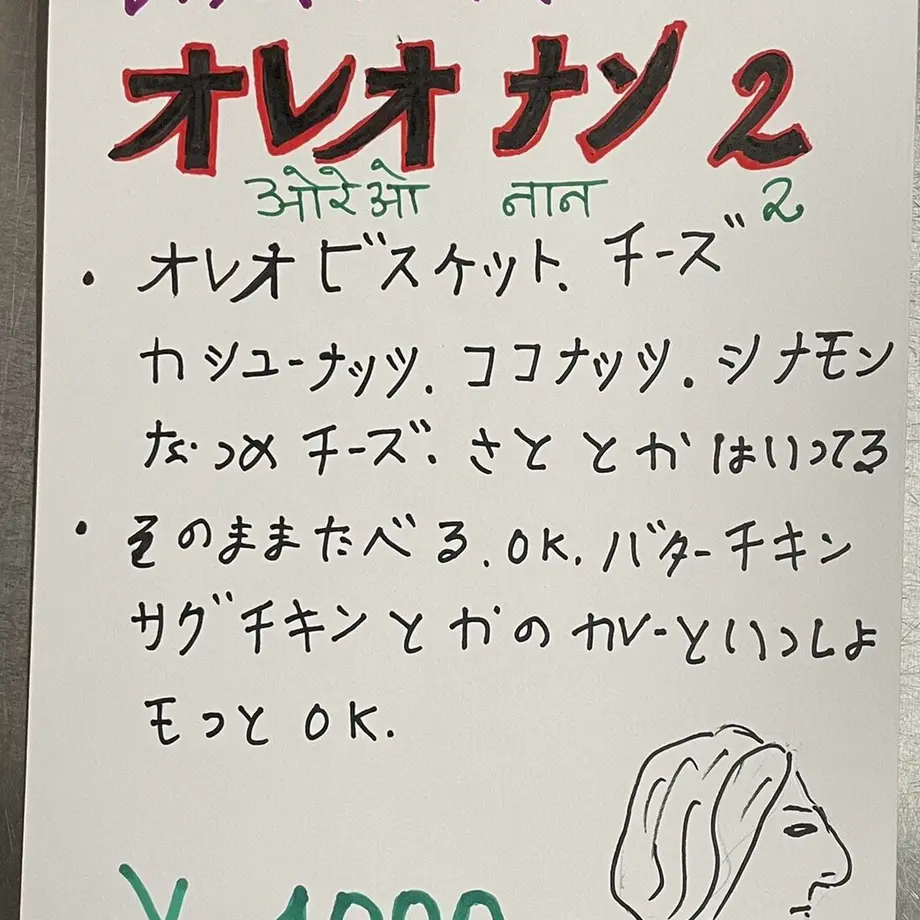 オレオ ナン 2
ओरेओ नान 2
・オレオ ビスケット. チーズ
カシューナッツ. ココナッツ. シナモン
なつめ チーズ. さとと とか はいってる
・そのままたべる. OK. バターチキン
サグチキンとかの カレーといっしょ
モっと OK.